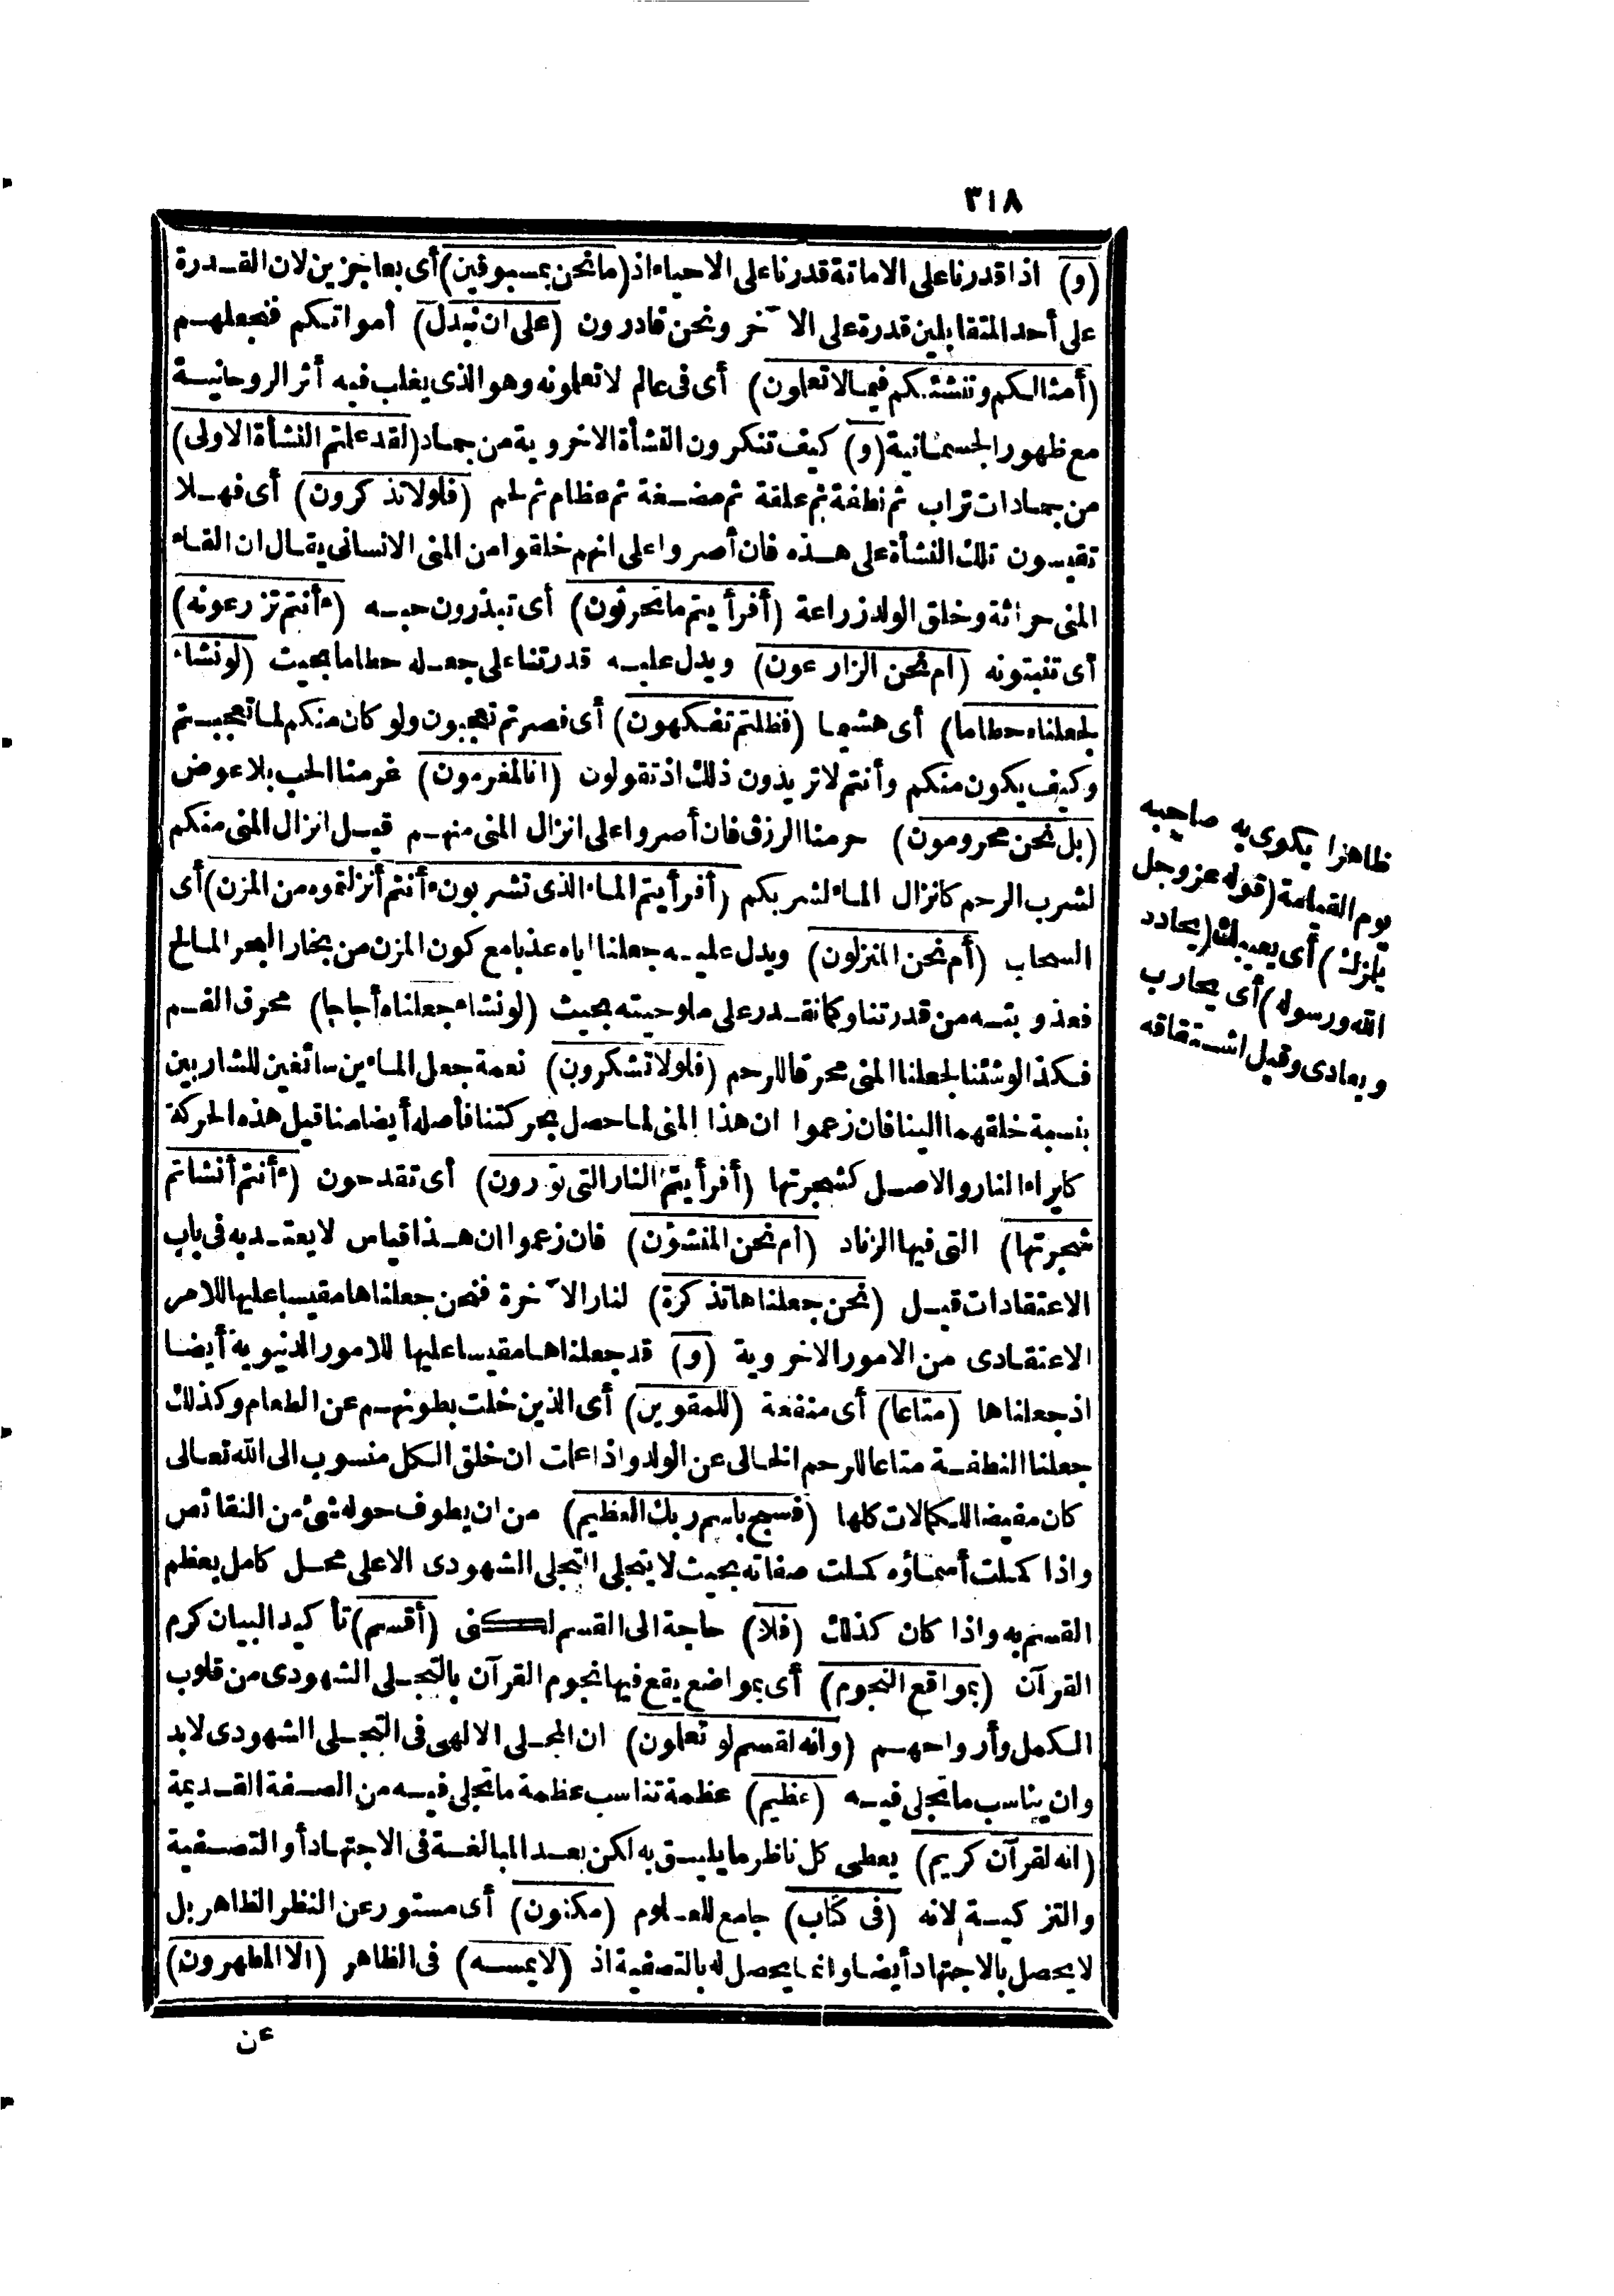 ٣١٨
(و) اذا قدرنا على الاماتة قدرنا على الاحياء اذ (ما نحن بمسبوقين) أى بعاجزين لان القدرة
على أحد المتقابلين قدرة على الآخر ونحن قادرون (على ان نبدل) أمواتكم فنجعلهم
(أمثالكم وننشئكم فيما لا تعلون) أى فى عالم لا تعلمونه وهو الذى يغلب فيه أثر الروحانية
مع ظهور الجسمانية (و) كيف تنكرون النشأة الاخروية من جماد (لقد علمتم النشأة الاولى)
من جمادات تراب ثم نطفة ثم علقة ثم مضغة ثم عظام ثم لحم (فلولا تذكرون) أى فهلا
تقيسون تلك النشأة على هذه فان أصروا على انهم خلقوا من المنى الانسانى يقال ان القاء
المنى حراثة وخلق الولد زراعة (أفرأيتم ما تحرثون) أى تبذرون حبه (ءأنتم تزرعونه)
أى تنبتونه (أم نحن الزارعون) ويدل عليه قدرتنا على جعله حطاما بحيث (لو نشاء
لجعلناه حطاما) أى هشيما (فظلتم تفكهون) أى فصرتم تعجبون ولو كان منكم لما تعجبتم
وكيف يكون منكم وأنتم لا تريدون ذلك اذ تقولون (انا لمغرمون) غرمنا الحب بلا عوض
(بل نحن محرومون) حرمنا الرزق فان أصروا على انزال المنى منهم قيل انزال المنى منكم
لشرب الرحم كانزال الماء لشربكم (أفرأيتم الماء الذى تشربون ءأنتم أنزلتموه من المزن) أى
السحاب (أم نحن المنزلون) ويدل عليه جعلنا اياه عذبا مع كون المزن من بخار البحر المالح
فعذوبته من قدرتنا وكما نقدر على ملوحيته بحيث (لو نشاء جعلناه أجاجا) محرق الفم
فكذا لو شئنا لجعلنا المنى محرقا للرحم (فلولا تشكرون) نعمة جعل الماءين سائغين للشاربين
بنسبة خلقهما الينا فان زعموا ان هذا المنى لما حصل بحركتنا فأصله أيضا منا قيل هذه الحركة
كايراء النار والاصل كشجرتها (أفرأيتم النار التى تورون) أى تقدحون (ءأنتم أنشأتم
شجرتها) التى فيها الزناد (أم نحن المنشؤن) فان زعموا ان هذا قياس لا يعتد به فى باب
الاعتقادات قيل (نحن جعلناها تذكرة) لنار الآخرة فنحن جعلناها مقيسا عليها للامر
الاعتقادى من الامور الاخروية (و) قد جعلناها مقيسا عليها للامور الدنيوية أيضا
اذ جعلناها (متاعا) أى منفعة (للمقوين) أى الذين خلت بطونهم عن الطعام وكذلك
جعلنا النطفة متاعا للرحم الخالى عن الولد واذا علمت ان خلق الكل منسوب الى الله تعالى
كان مفيضا للكمالات كلها (فسبح باسم ربك العظيم) من ان يطوف حوله شئ من النقائص
واذا كملت أسماؤه كملت صفاته بحيث لا يتجلى التجلى الشهودى الاعلى محل كامل يعظم
القسم به واذا كان كذلك (فلا) حاجة الى القسم لكنى (أقسم) تأكيد البيان كرم
القرآن (بمواقع النجوم) أى بمواضع يقع فيها نجوم القرآن بالتجلى الشهودى من قلوب
الكمل وأرواحهم (وانه لقسم لو تعلون) ان المجلى الالهى فى التجلى الشهودى لا بد
وان يناسب ما تجلى فيه (عظيم) عظمة تناسب عظمة ما تجلى فيه من الصفة القديمة
(انه لقرآن كريم) يعطى كل ناظر ما يليق به لكن بعد المبالغة فى الاجتهاد أو التصفية
والتزكية لانه (فى كتاب) جامع للعلوم (مكنون) أى مستور عن النظر الظاهر بل
لا يحصل بالاجتهاد أيضا وانما يحصل له بالتصفية اذ (لا يمسه) فى الظاهر (الا المطهرون)
عن
ظاهرا يكوى به صاحبه
يوم القيامة (قوله عز وجل
يلمزك) أى يعيبك (يحادد
الله ورسوله) أى يحارب
ويعادى وقيل اشتقاقه